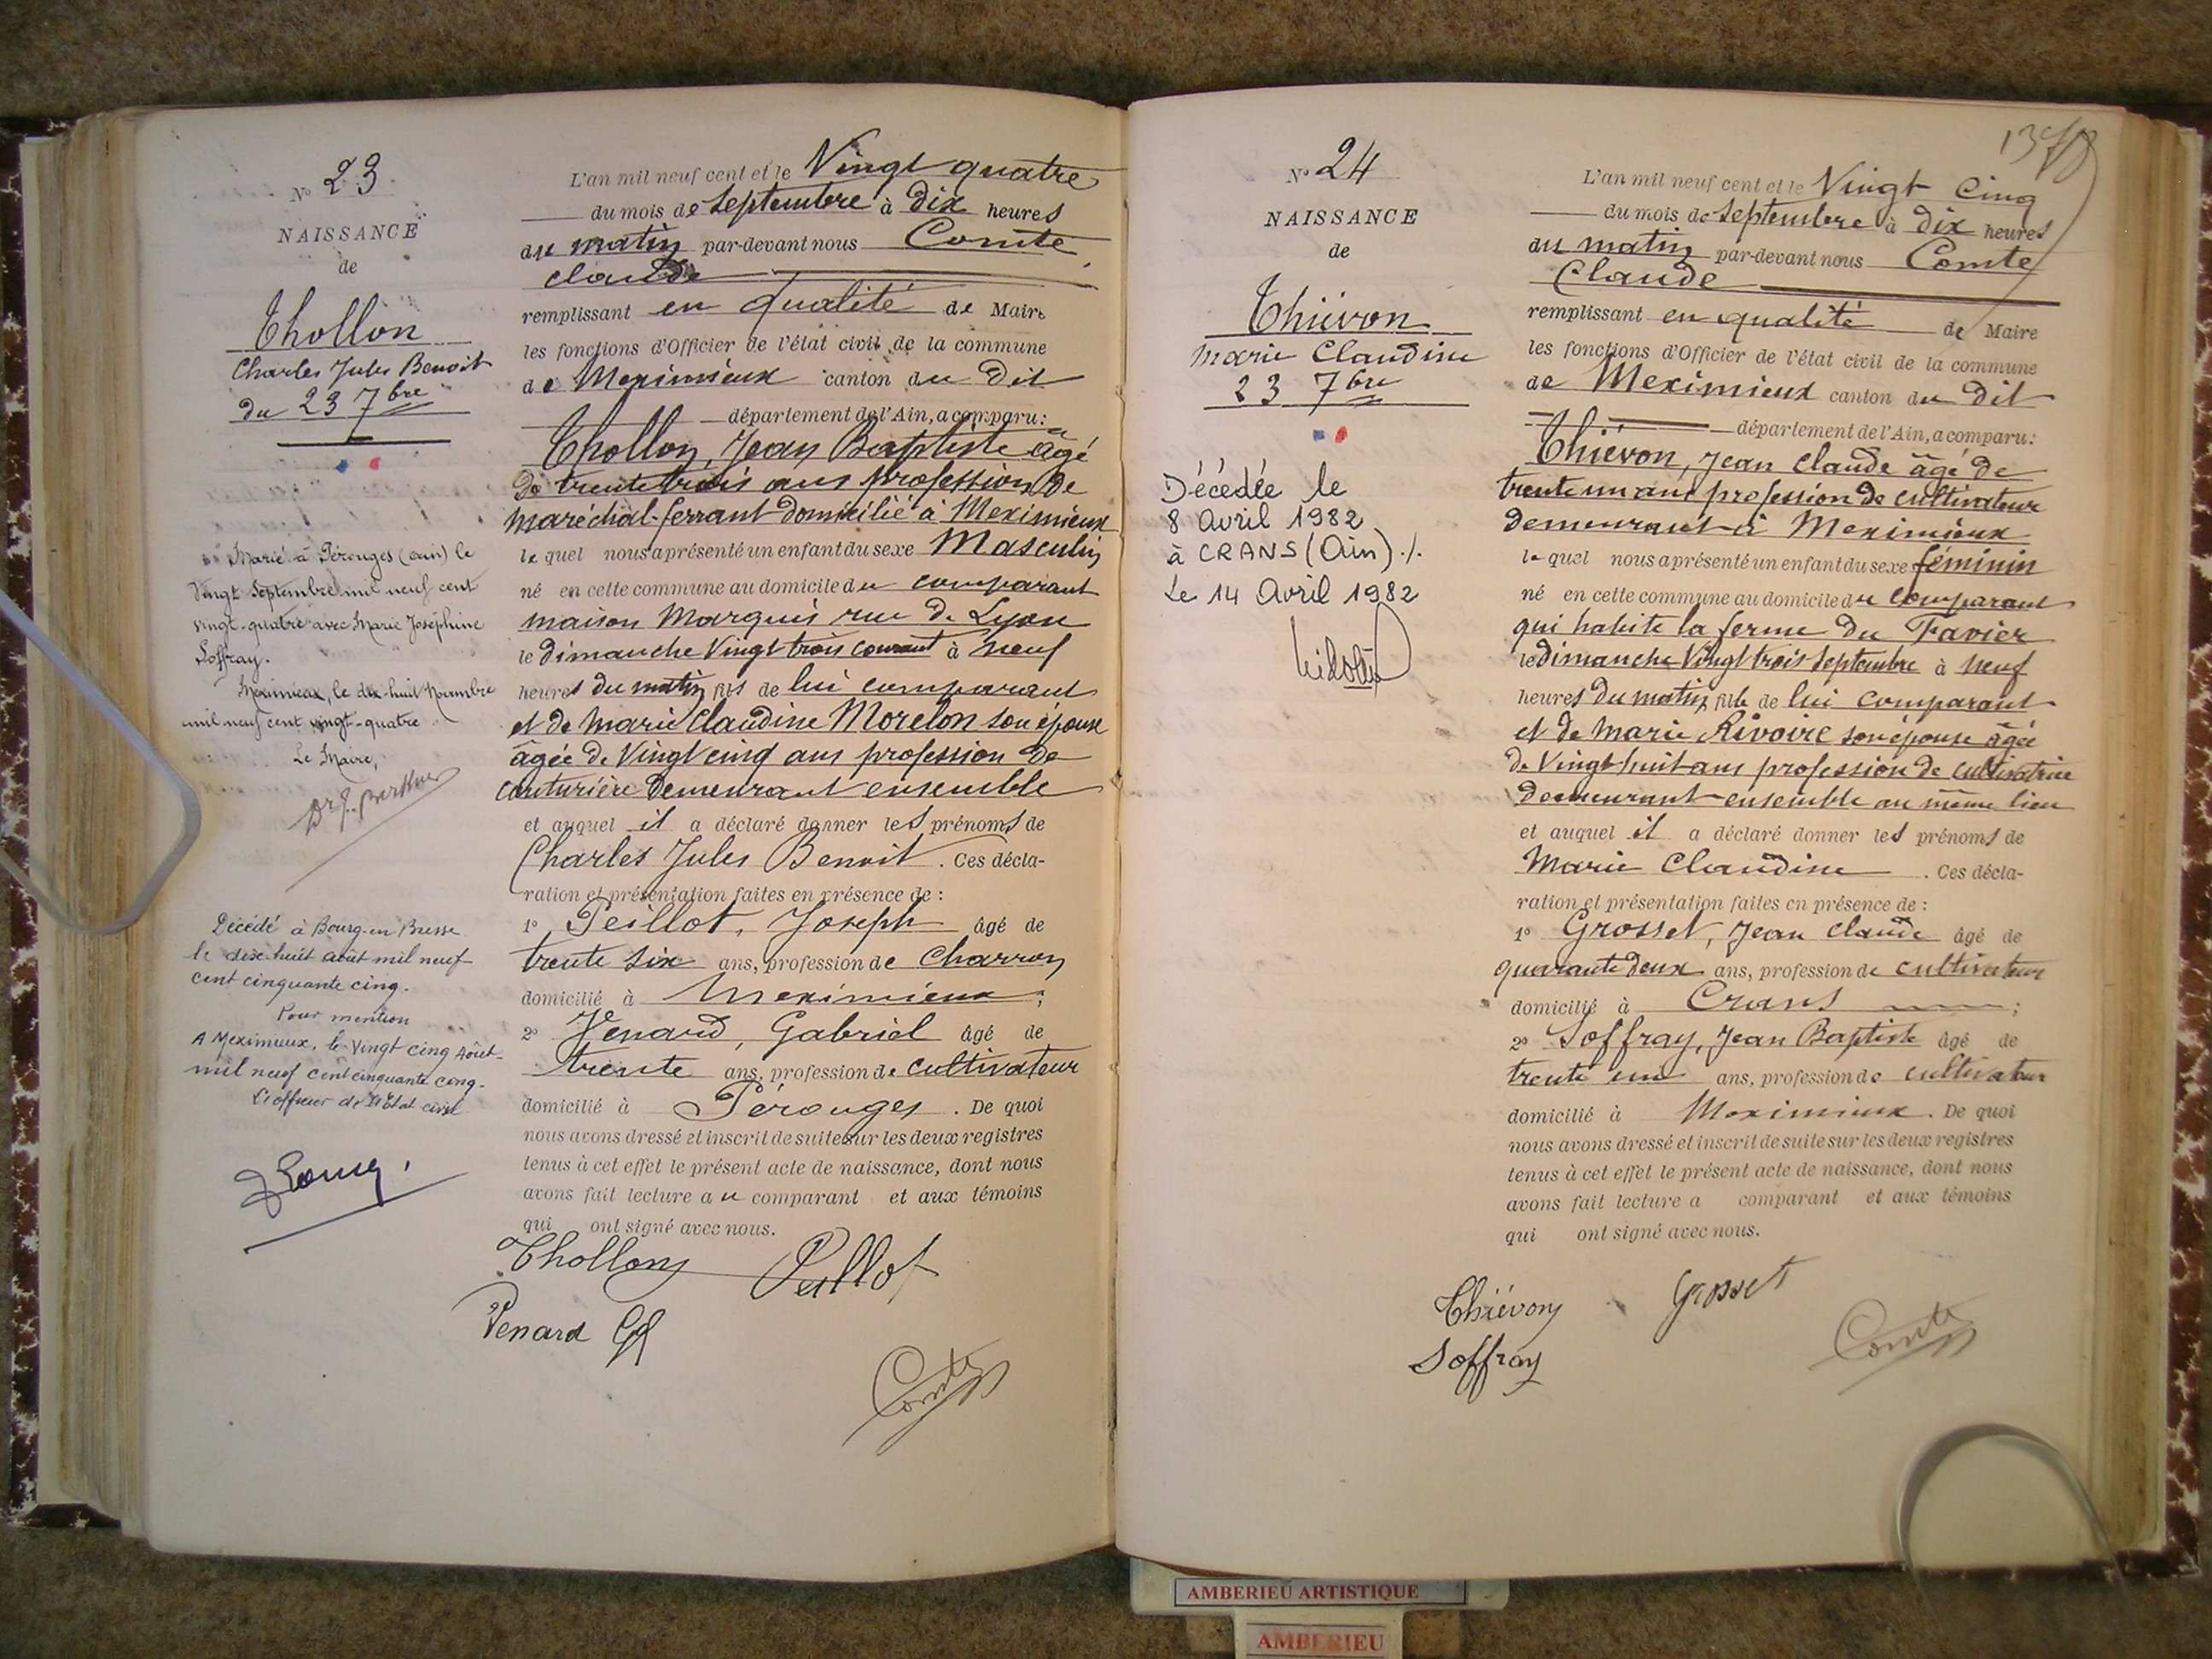 N° 23
NAISSANCE
de
Thollon
Charles Jules Benoit
du 23 7bre
Marié à Pérouges (ain) le
Vingt Septembre mil neuf cent
vingt-quatre avec Marie Joséphine
Soffray.
Meximieux, le dix-huit Novembre
mil neuf cent vingt-quatre
Le Maire,
Décédé à Bourg-en Bresse
le dix huit août mil neuf
cent cinquante cinq.
Pour mention
A Meximieux, le Vingt cinq Août
mil neuf cent cinquante cinq.
L'officier de l'Etat civil
L'an mil neuf cent et le Vingt quatre
du mois de Septembre à dix heures
du matin par-devant nous Comte
Claude
remplissant en qualité de Maire
les fonctions d'Officier de l'état civil de la commune
de Meximieux canton du dit
département de l'Ain, a comparu:
Thollon, Jean Baptiste âgé
de trente trois ans profession de
maréchal-ferrant domicilié à Meximieux
le quel nous a présenté un enfant du sexe Masculin
né en cette commune au domicile du comparant
maison Marquis rue de Lyon
le dimanche Vingt trois courant à neuf
heures du matin fils de lui comparant
et de Marie Claudine Morelon son épouse
âgée de Vingt cinq ans profession de
couturière demeurant ensemble
et auquel il a déclaré donner les prénoms de
Charles Jules Benoit. Ces décla-
ration et présentation faites en présence de :
1° Peillot, Joseph âgé de
trente six ans, profession de Charron
domicilié à Meximieux ;
2° Venard, Gabriel âgé de
trente ans, profession de cultivateur
domicilié à Pérouges. De quoi
nous avons dressé et inscrit de suite sur les deux registres
tenus à cet effet le présent acte de naissance, dont nous
avons fait lecture au comparant et aux témoins
qui ont signé avec nous.
Thollon Peillot
Venard
Comte
N° 24
NAISSANCE
de
Thiévon
Marie Claudine
23 7bre
Décédée le
8 Avril 1982
à CRANS (Ain)./.
Le 14 Avril 1982
L'an mil neuf cent et le Vingt cinq
du mois de Septembre à dix heures
du matin par-devant nous Comte
Claude
remplissant en qualité de Maire
les fonctions d'Officier de l'état civil de la commune
de Meximieux canton du dit
département de l'Ain, a comparu:
Thiévon, Jean Claude âgé de
trente un ans profession de cultivateur
demeurant à Meximieux
le quel nous a présenté un enfant du sexe féminin
né en cette commune au domicile du comparant
qui habite la ferme du Favier
le dimanche Vingt trois Septembre à neuf
heures du matin, fille de lui comparant
et de Marie Rivoire son épouse âgée
de Vingt huit ans profession de cultivatrice
demeurant ensemble au même lieu
et auquel il a déclaré donner les prénoms de
Marie Claudine. Ces décla-
ration et présentation faites en présence de :
1° Grosset, Jean Claude âgé de
quarante deux ans, profession de cultivateur
domicilié à Crans ;
2° Soffray, Jean Baptiste âgé de
trente un ans, profession de cultivateur
domicilié à Meximieux. De quoi
nous avons dressé et inscrit de suite sur les deux registres
tenus à cet effet le présent acte de naissance, dont nous
avons fait lecture a comparant et aux témoins
qui ont signé avec nous.
Thiévon Grosset
Soffray
Comte
AMBERIEU ARTISTIQUE
AMBERIEU